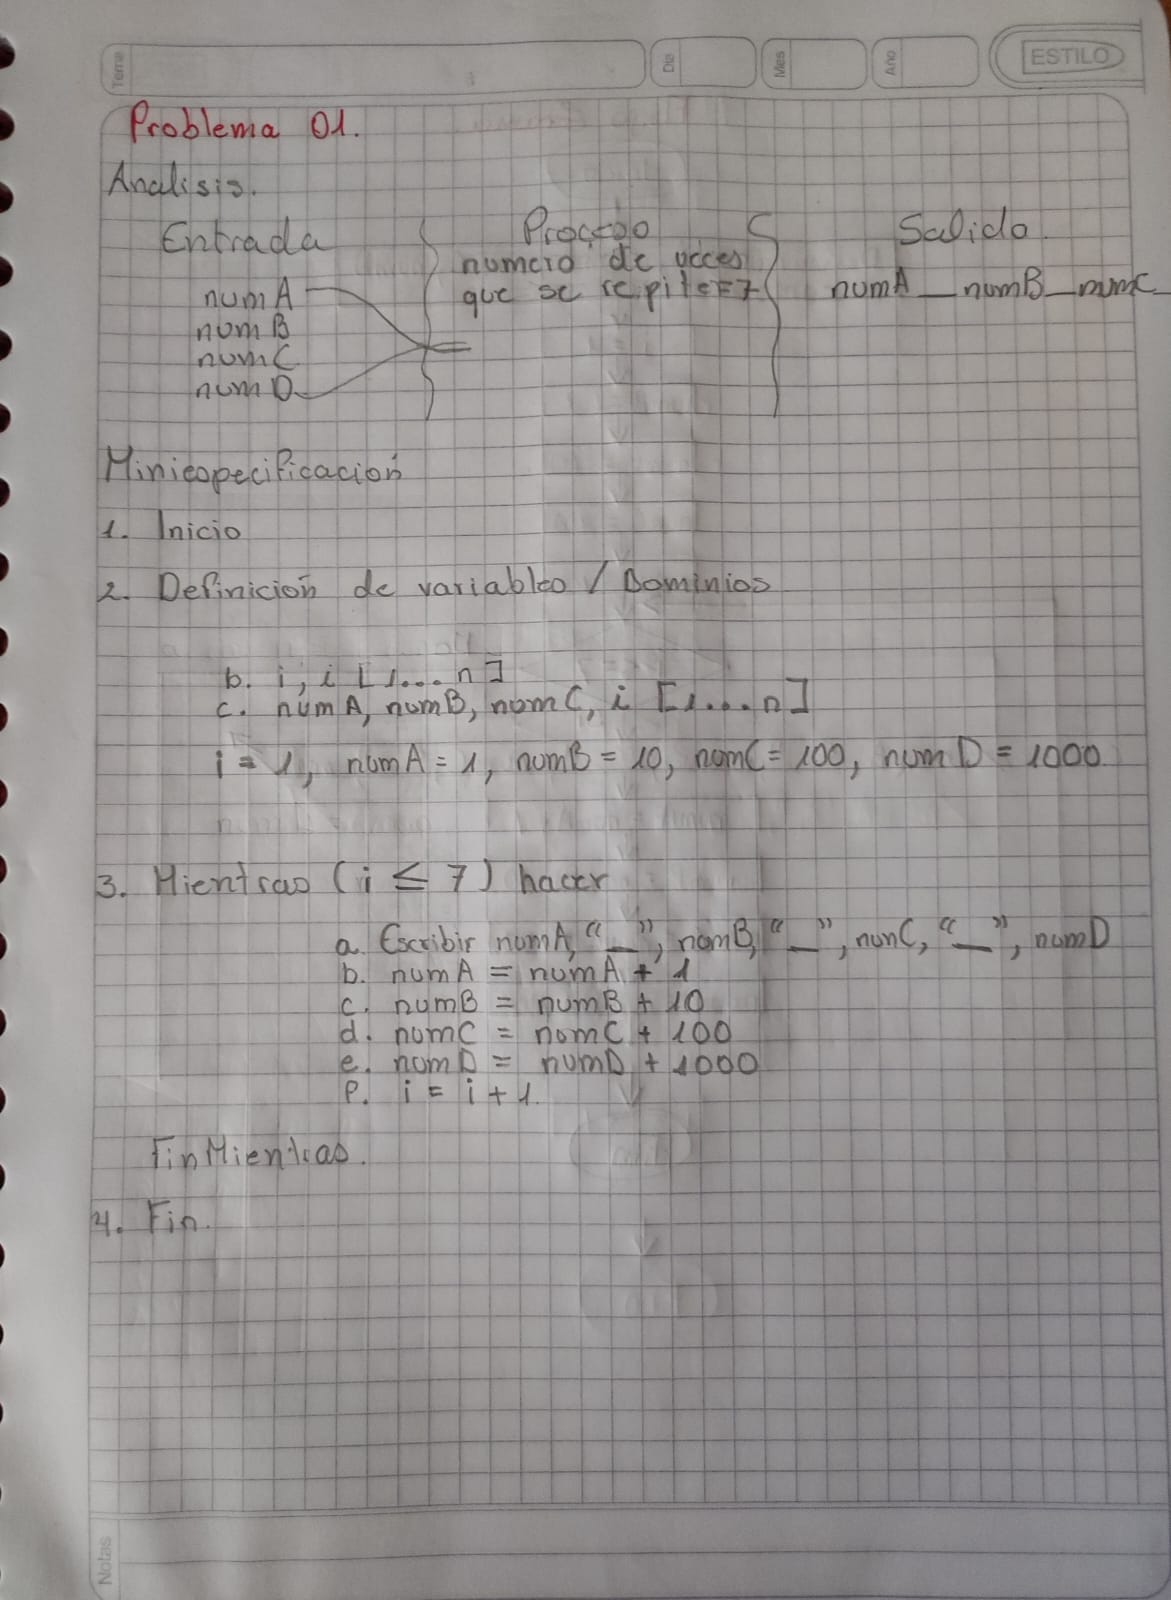 Tema Dia Mes Año ESTILO
Problema 01.
Analisis.
Entrada Proceso Salida
numero de veces
numA que se repite=7 numA_numB_numC_
numB
numC
numD
Miniespecificación
1. Inicio
2. Definición de variables / Dominios
b. i, i [1...n]
c. numA, numB, numC, i [1...n]
i = 1, numA = 1, numB = 10, numC = 100, numD = 1000
3. Mientras (i ≤ 7) hacer
a. Escribir numA, “_”, numB, “_”, numC, “_”, numD
b. numA = numA + 1
c. numB = numB + 10
d. numC = numC + 100
e. numD = numD + 1000
f. i = i + 1.
FinMientras.
4. Fin.
Notas